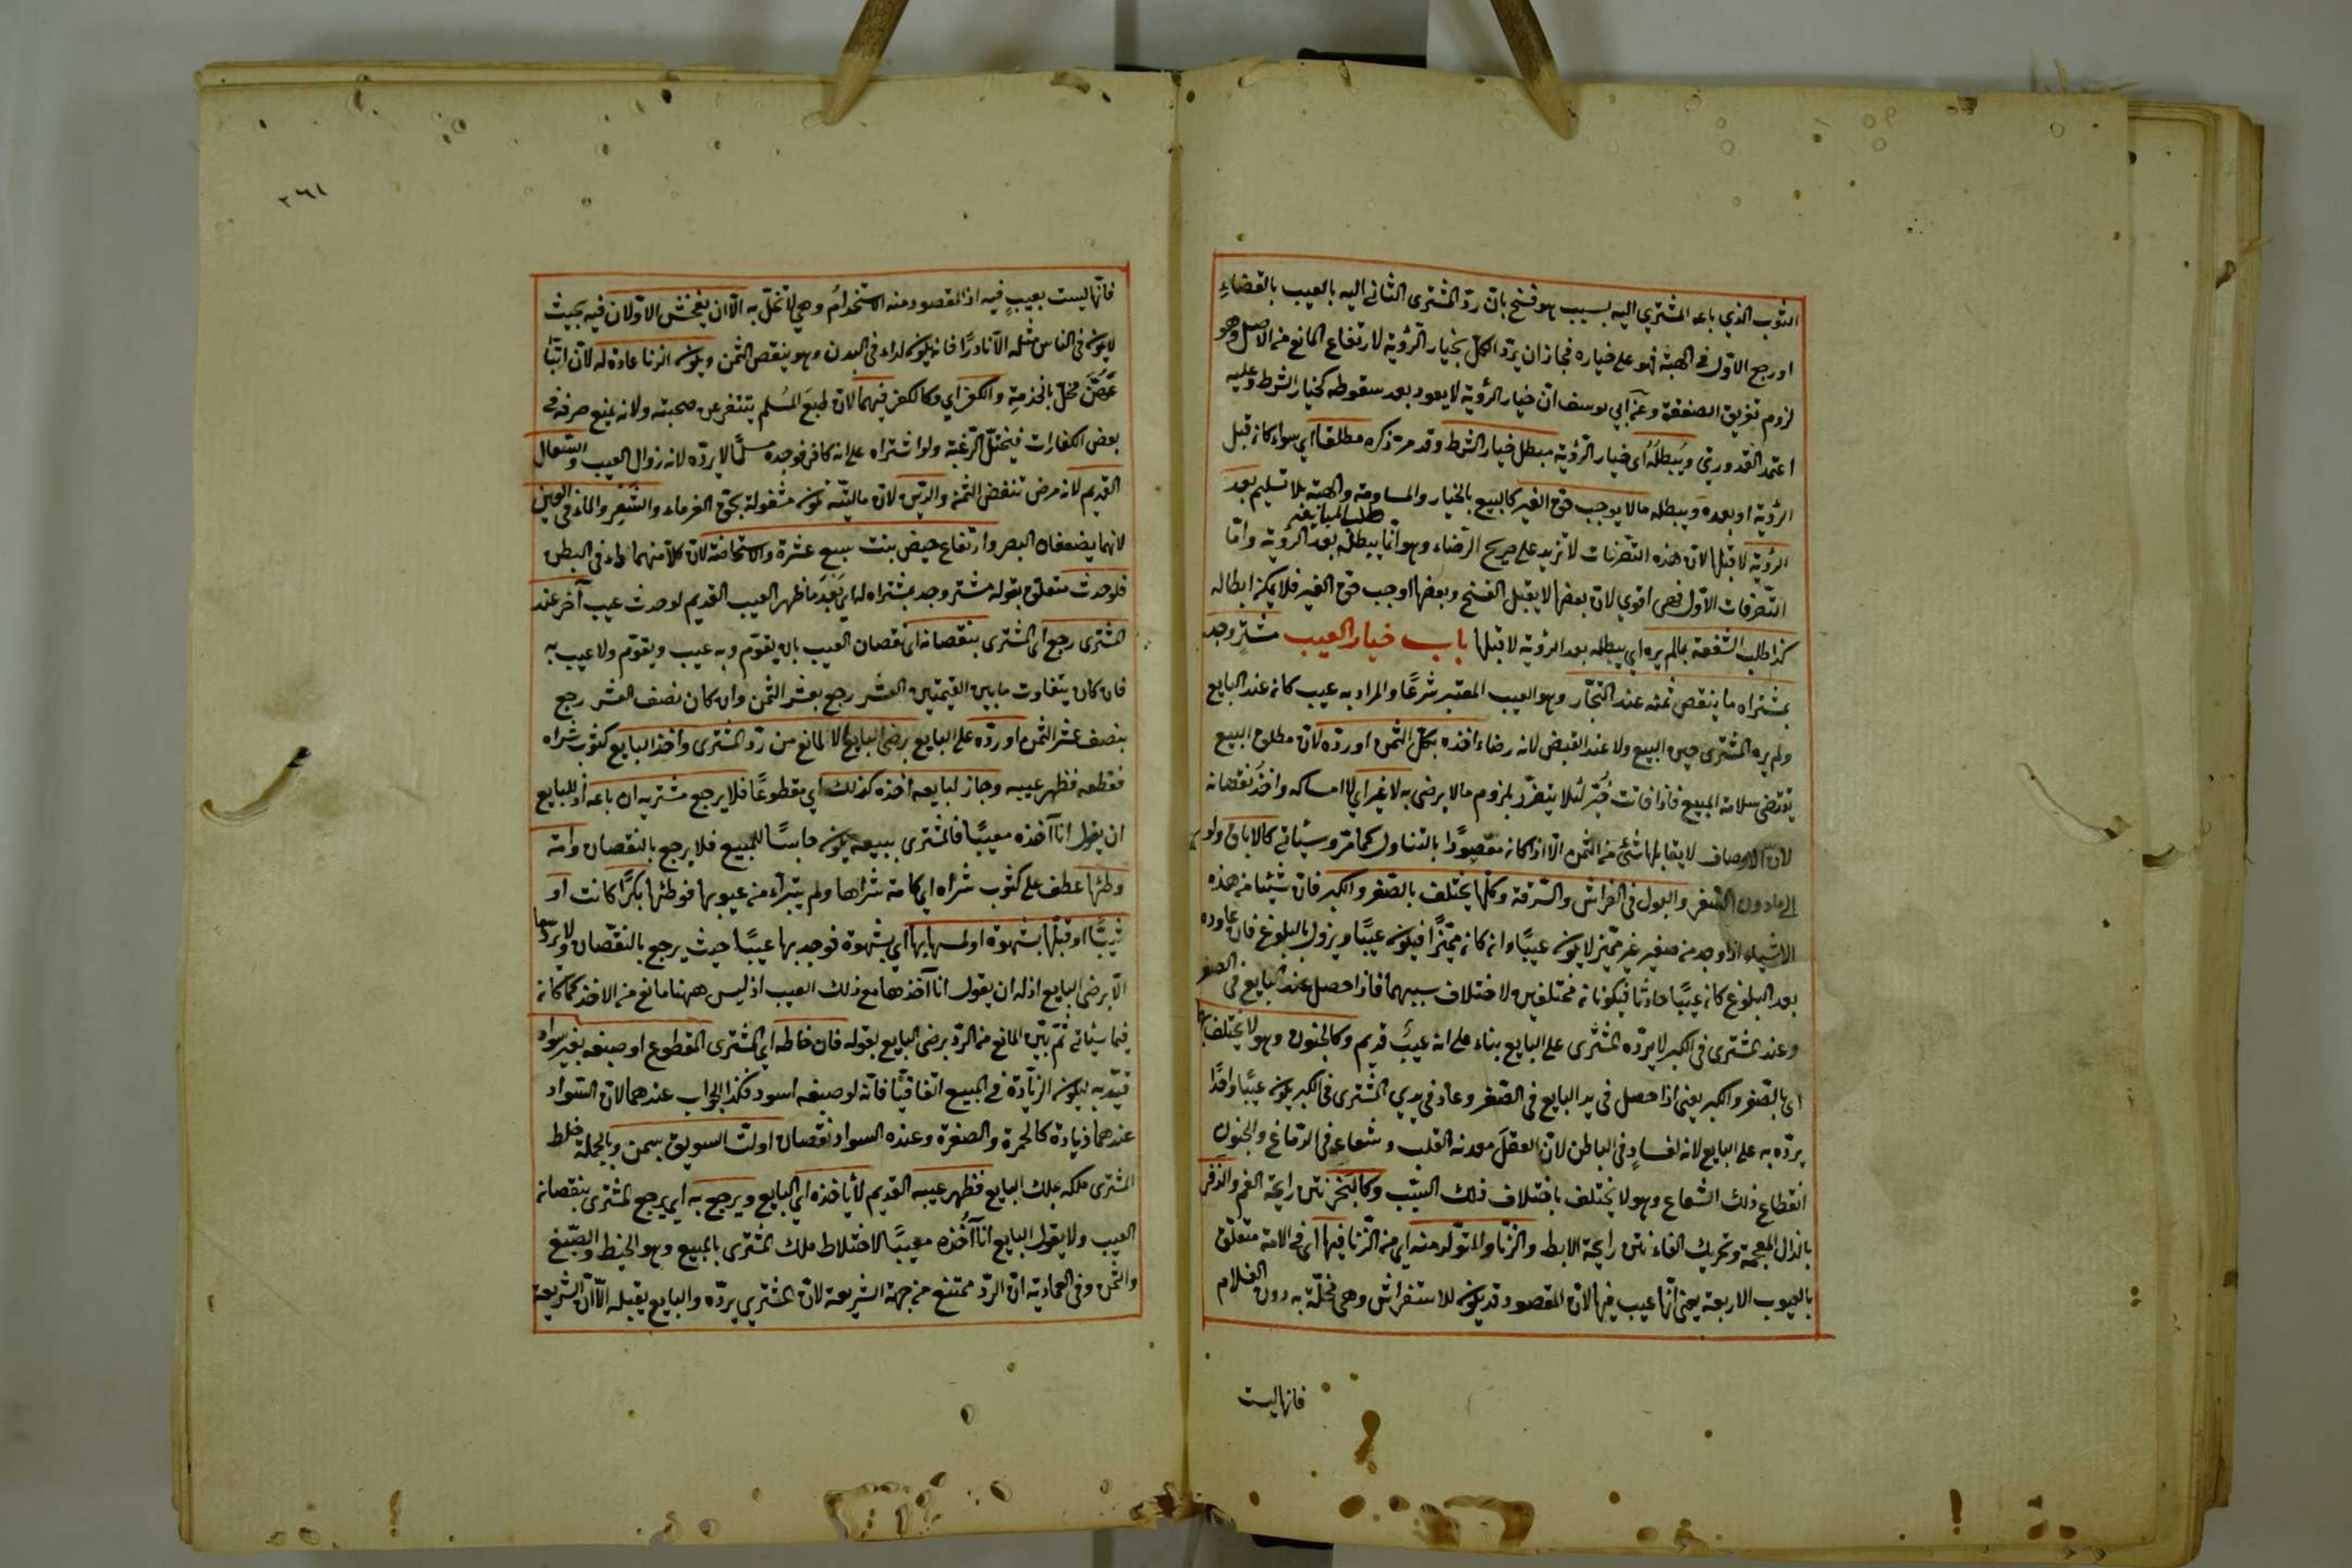 الثوب الذي باعه المشتري اليه بسبب هو فسخ بان ردّ المشترى الثانى اليه بالعيب بالقضاءِ
او رجع الاوّل فى الهبة فهو على خياره فجاز ان يردّ الكلّ بخيار الرّؤية لارتفاع المانع من الاصل وهو
لزوم تفريق الصفقة وعن ابي يوسف انّ خيار الرؤية لا يعود بعد سقوطه كخيار الشرط وعليه
اعتمد القدوري ويبطلُهُ اى خيار الرّؤية مبطل خيار الشرط وقد مرّ ذكره مطلقا اي سواء كان قبل
الرؤية او بعده ويبطله ما لا يوجب حقّ الغير كالبيع بالخيار والمساومة والهبة بلا تسليم بعد
الرؤية لا قبلها لان هذه التصرّفات لا تزيد على صريح الرّضاء وهو انّما يبطله بعد الرؤية وامّا
التّصرفات الاول فهى اقوي لان بعضها لا يقبل الفسخ وبعضها اوجب حقّ الغير فلا يمكن ابطاله
كذا طلب الشّفعة بمالم يره اي يبطله بعد الرؤية لا قبلها باب خيار العيب مشترٍ وجد
بمشتراه ما ينقص ثمنه عند التجّار وهو العيب المعتبر شرعًا والمراد به عيب كان عند البايع
ولم يره المشترى حين البيع ولا عند القبض لانه رضاء اخذه بكلّ الثمن او ردّه لان مطلق البيع
يقتضى سلامة المبيع فاذا فاتت خُيّر لئلا يتضرّر بلزوم ما لا يرضى به لا غير اي لا امساكه واخذ نقصانه
لان الاوصاف لا يقابلها شئ من الثمن الّا اذا كان مقصودًا بالتناول كما مرّ وسيأتى كالاباق ولو
الى مادون السّفر والبول فى الفراش والسّرقة وكلّها يختلف بالصّغر والكبر فان شيئا من هذه
الاشياء اذا وجد من صغير غير مميّز لا يكون عيبًا وان كان مميّزًا فيكون عيبًا ويزول بالبلوغ فان عاوده
بعد البلوغ كان عيبًا حادثا فيكونان مختلفين لاختلاف سببهما فاذا حصل عند البايع فى الصغر
وعند المشترى فى الكبر لا يردّه المشترى على البايع بناء على انه عيبٌ قديم وكالجنون وهو لا يختلف بهما
اى بالصّغر والكبر يعنى اذا حصل فى يد البايع فى الصّغر وعاد فى يدي المشترى فى الكبر يكون عيبًا واحدًا
يردّه به على البايع لانه لفسادٍ فى الباطن لانّ العقلَ معدنه القلب وشعاعه فى الدّماغ والجنون
انقطاع ذلك الشعاع وهو لا يختلف باختلاف ذلك السّبب وكالبَخَرِ نتن رايحة الفم والذفر
بالذال المعجمة وتحريك الفاء نتن رايحة الابط والزّنا والتولد منه اي من الزّنا فيها اى فى الامة متعلق
بالعيوب الاربعة يعنى انّها عيب فيها لانّ المقصود قد يكون الاستفراش وهى مخلّة به دون الغلام
فانها ليست
٢٦١
فانّها ليست بعيبٍ فيه اذ المقصود منه الاستخدام وهي لا تخلّ به الّا ان يفحش الاوّلان فيه بحيث
لا يكون فى الناس مثله الّا نادرًا فانه يكون لداء فى البدن وهو ينقص الثمن ويكون الزنا عادة له لانّ اتباع
هنّ مخلّ بالخدمةِ والكفر اي وكالكفر فيهما لان طبعَ المُسلم يتنفر عن صحبته ولانه يمنع صرفه فى
بعض الكفارات فيختلّ الرّغبة ولو اشتراه على انه كافر فوجده مسلمًا لا يردّه لانه زوال العيب والسّعال
القديم لانه مرض تنقض الثمن والدّين لان ماليّته تكون مشغولة بحقّ الغرماء والشّعر والماء فى العين
لانهما يضعفان البصر وارتفاع حيض بنت سبع عشرة والاستحاضة لان كلّا منهما لداء فى البطن
فلو حدث متعلق بقوله مشتر وجد بمشتراه له اي بَعْدَ ما ظهر العيب القديم لو حدث عيب آخر عند
المشترى رجع اى المشترى بنقصانه اى نقصان العيب بان يقوّم وبه عيب ويقوّم ولا عيب به
فان كان يتفاوت ما بين القيمتين العشر رجع بعشر الثمن وان كان نصف العشر رجع
بنصف عشر الثمن او ردّه على البايع برضى البايع الّا لمانع من ردّ المشترى واخذ البايع كثوب شراه
فقطعه فظهر عيبه وجاز لبايعه اخذه كذلك اي مقطوعًا فلا يرجع مشتريه ان باعه اذ للبايع
ان يقول انا آخذه معيبًا فالمشترى ببيعه يكون حابسًا للمبيع فلا يرجع بالنقصان وامة
وطئها عطف على كثوب شراه اي كامة شراها ولم يتبرّاء من عيوبها فوطئها بكرًا كانت او
ثيّبًا او قبّلها بشهوة او لمسها بها اي بشهوة فوجد بها عيبًا حيث يرجع بالنّقصان ولا يردّها
الّا برضى البايع اذ له ان يقول انا آخذها مع ذلك العيب اذ ليس ههنا مانع من الاخذ كما كان
فيما سيأتى ثمّ بيّن المانع من الردّ برضى البايع بقوله فان خاطه اي المشترى المقطوع او صبغه بغير سواد
قيّد به ليكون الزّيادة فى المبيع اتفاقيًّا فانّه لو صبغه اسود فكذا الجواب عندهما لان السّواد
عندهما زيادة كالحمرة والصفرة وعنده السواد نقصان او لتّ السويق بسمن وبالجملة خلط
المشترى ملكه بملك البايع فظهر عيبه القديم لا يأخذه اي البايع ويرجع به اي يرجع المشترى بنقصانه
العيب ولا يقول البايع انا آخُذه معيبًا لاختلاط ملك المشترى بالمبيع وهو الخيط والصّبغ
والسّمن وفى العمادية انّ الردّ ممتنع من جهة الشريعة لانّ المشترى يردّه والبايع يقبله الّا انّ الشريعة